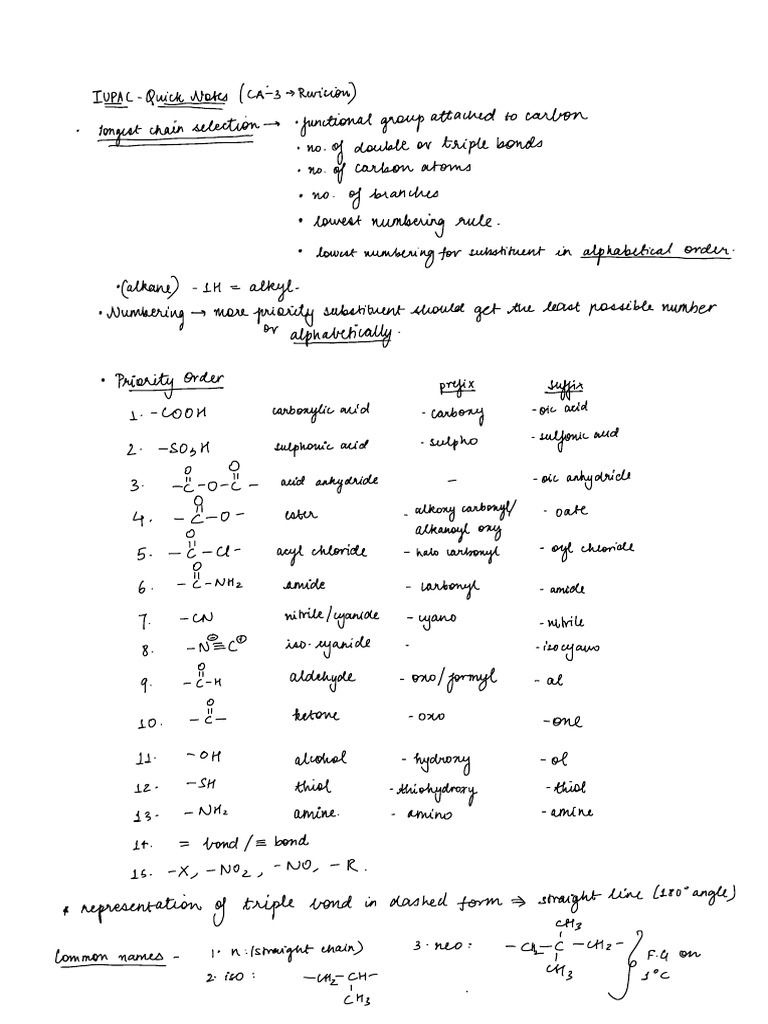 IUPAC - Quick Notes (CA-3 → Rivision)
• longest chain selection → • functional group attached to carbon
• no. of double or triple bonds
• no. of carbon atoms
• no. of branches
• lowest numbering rule.
• lowest numbering for substituent in alphabetical order.
• (alkane) - 1H = alkyl.
• Numbering → more priority substituent should get the least possible number
or alphabetically.
• Priority Order prefix suffix
1. -COOH carboxylic acid - carboxy - oic acid
2. -SO3H sulphonic acid - sulpho - sulfonic acid
3. -C(=O)-O-C(=O)- acid anhydride - - oic anhydride
4. -C(=O)-O- ester - alkoxy carbonyl/ alkanoyl oxy - oate
5. -C(=O)-Cl- acyl chloride - halo carbonyl - oyl chloride
6. -C(=O)-NH2 amide - carbonyl - amide
7. -CN nitrile/cyanide - cyano - nitrile
8. -N⊖≡C⊕ iso-cyanide - - isocyano
9. -C(=O)-H aldehyde - oxo/formyl - al
10. -C(=O)- ketone - oxo - one
11. -OH alcohol - hydroxy - ol
12. -SH thiol - thiohydroxy - thiol
13. -NH2 amine. - amino - amine
14. = bond / ≡ bond
15. -X, -NO2, -NO, -R.
* representation of triple bond in dashed form ⇒ straight line (180° angle)
Common names - 1. n: (straight chain) 3. neo: -CH2-C-CH2- CH3 CH3 F.G on 1°C
2. iso: -CH2-CH- CH3